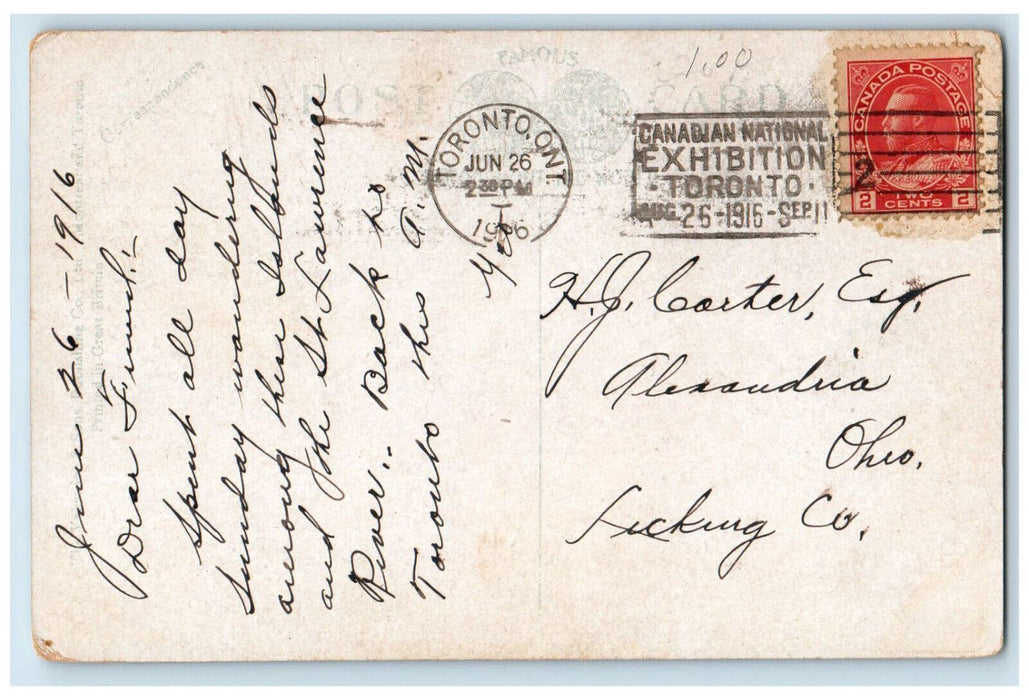 FAMOUS
POST CARD
Correspondence
1.00
TORONTO, ONT.
JUN 26
2 30 PM
1916
CANADIAN NATIONAL
EXHIBITION
· TORONTO ·
AUG. 26 - 1916 - SEP 11
CANADA POSTAGE
2 TWO 2
CENTS
June 26 - 1916
Dear Friend:-
Spent all day
Sunday wandering
among these Islands
and the St Lawrence
River.. Back to
Toronto this A.M.
H. J. Carter, Esq.
Alexandria
Ohio.
Licking Co.
Printed in Great Britain